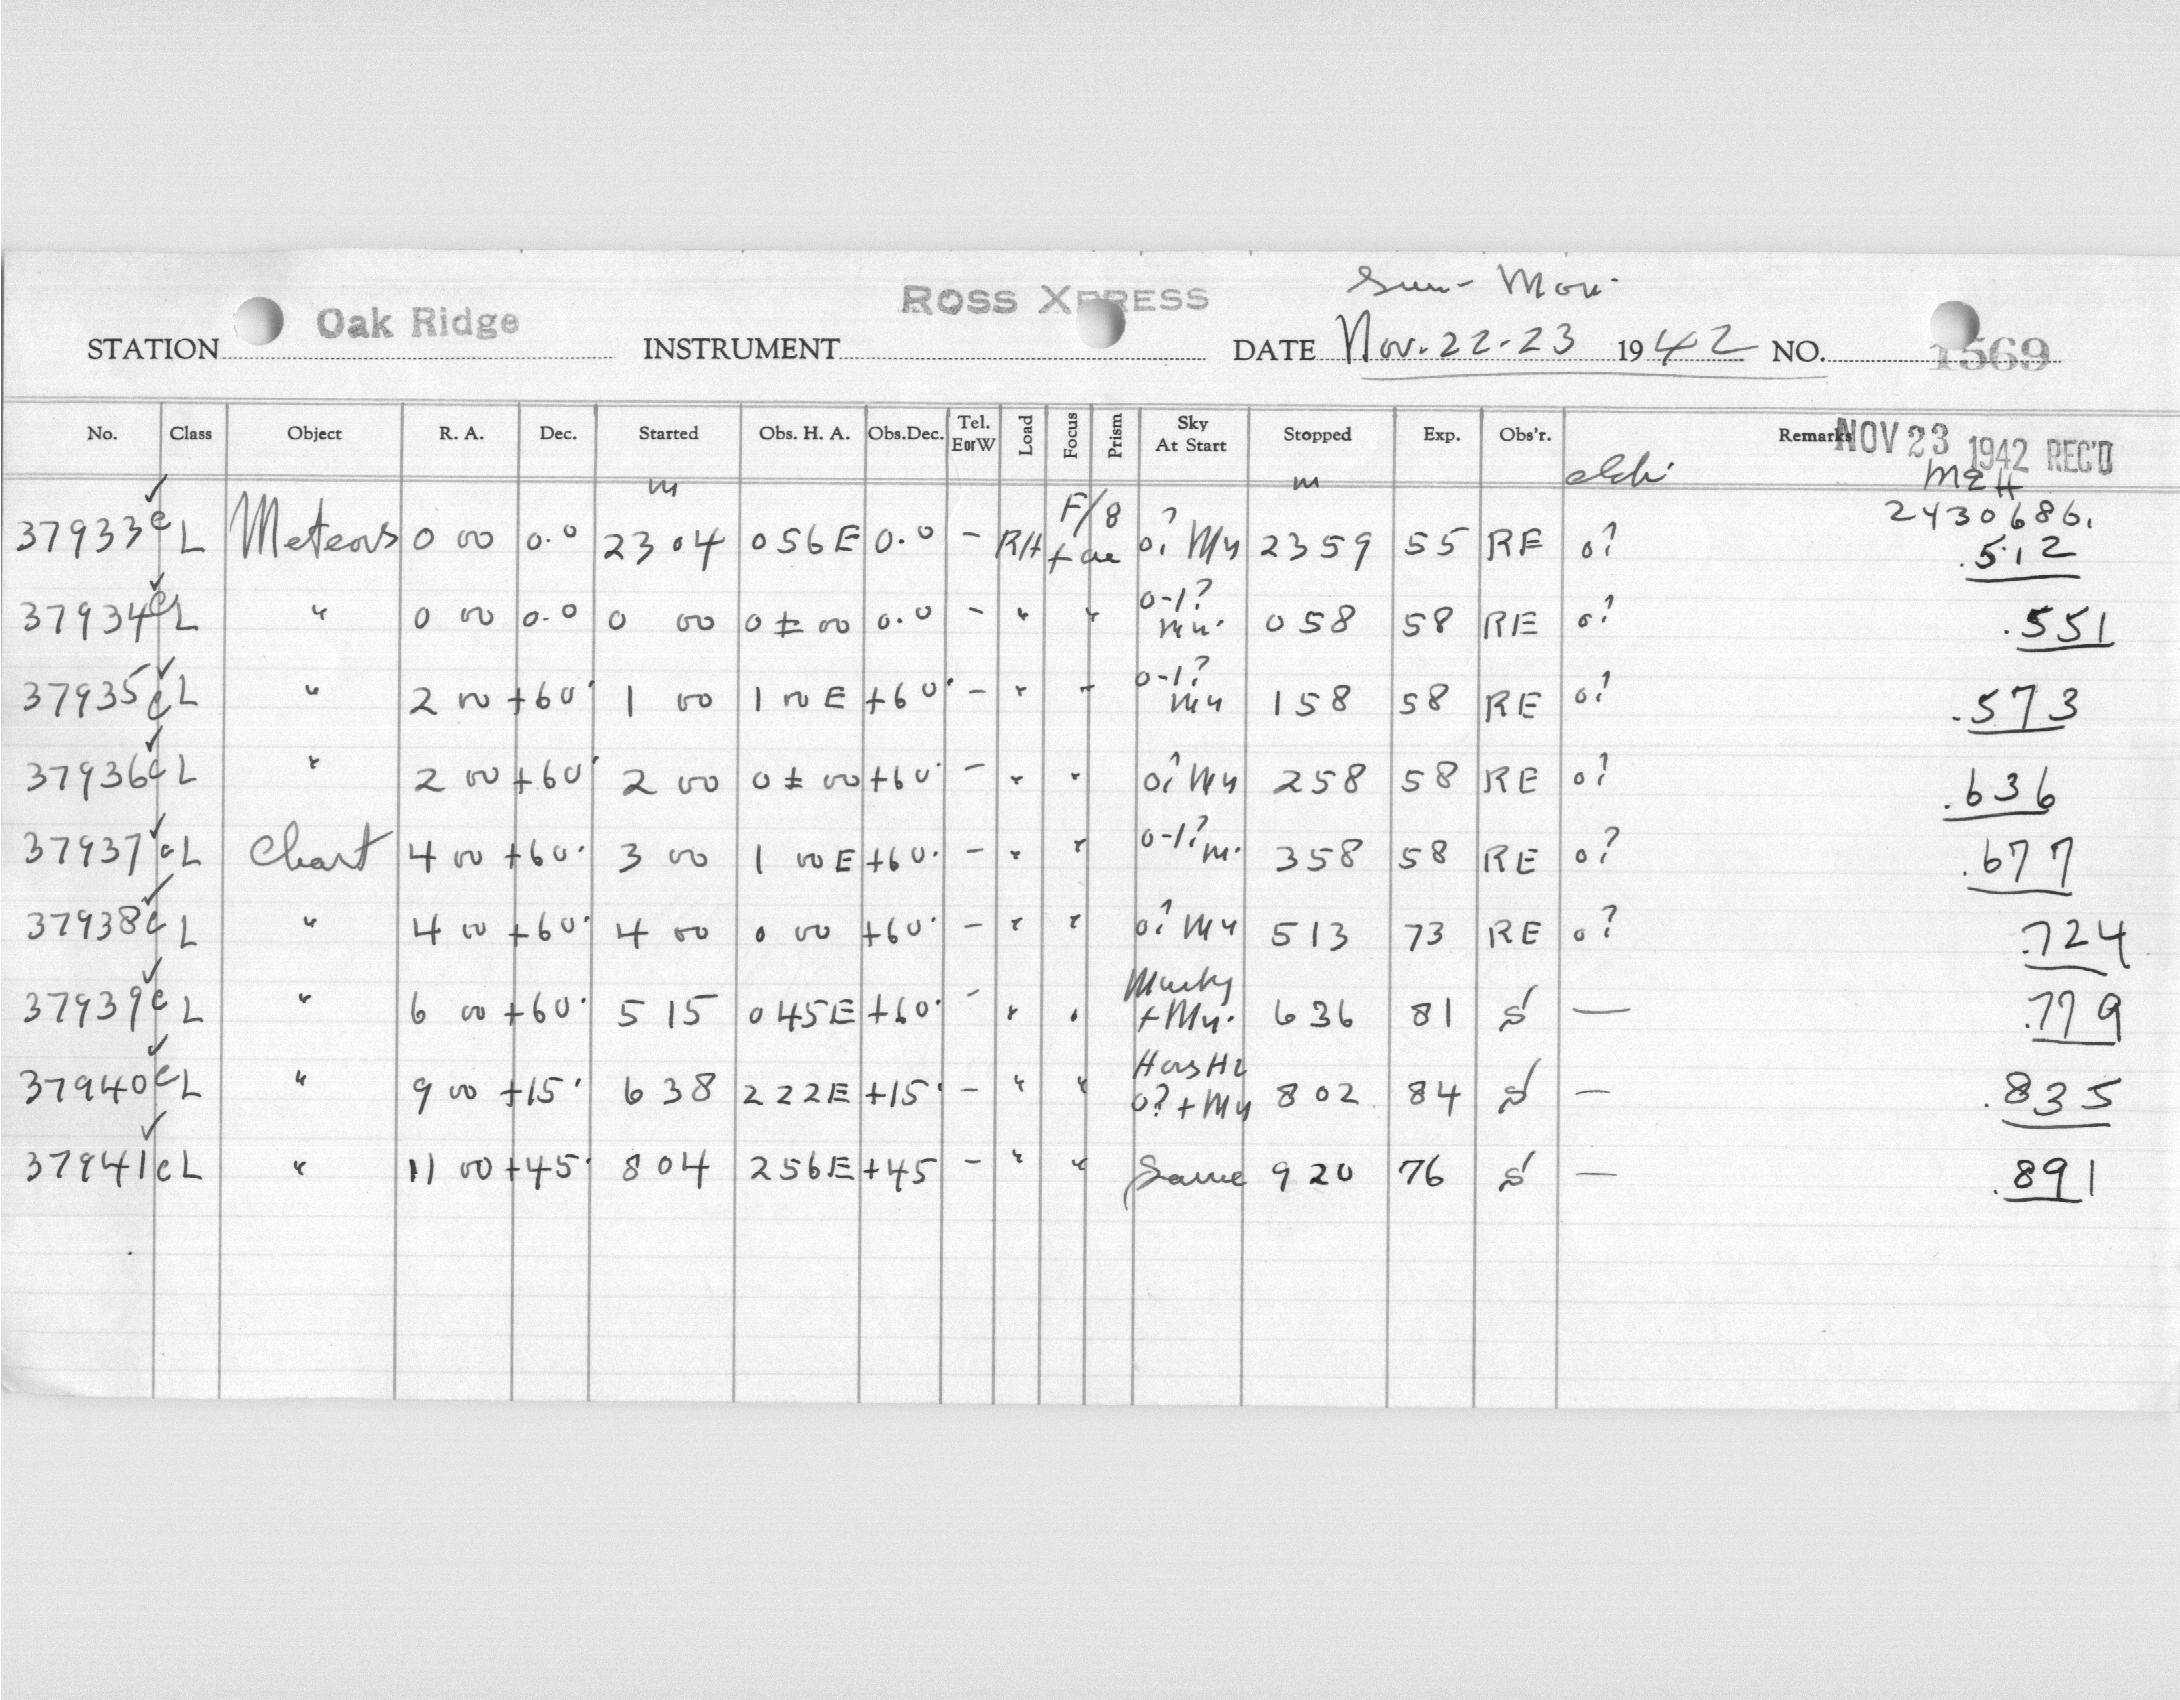 Sun - Mon.
STATION Oak Ridge INSTRUMENT ROSS XPRESS DATE Nov. 22-23 1942 NO. 1569
No. Class Object R. A. Dec. Started Obs. H. A. Obs.Dec. Tel. E or W Load Focus Prism Sky At Start Stopped Exp. Obs'r. Remarks NOV 23 1942 REC'D
m m MEH
2430686.
37933 c L Meteors 0 00 0.0 23 04 0 56 E 0.0 - RH F/8 0? My 23 59 55 RE 0? .512
37934 c L " 0 00 0.0 0 00 0 ± 00 0.0 - " " 0-1? 0 58 58 RE 0? .551
37935 c L " 2 00 +60° 1 00 1 00 E +60° - " " 0-1? My 1 58 58 RE 0? .573
37936 c L " 2 00 +60° 2 00 0 ± 00 +60° - " " 0? My 2 58 58 RE 0? .636
37937 c L Chart 4 00 +60° 3 00 1 00 E +60° - " " 0-1? m. 3 58 58 RE 0? .677
37938 c L " 4 00 +60° 4 00 0 00 +60° - " " 0? My 5 13 73 RE 0? .724
37939 c L " 6 00 +60° 5 15 0 45 E +60° - " " Murky + My. 6 36 81 S — .779
37940 c L " 9 00 +15° 6 38 2 22 E +15° - " " 0? + My 8 02 84 S — .835
37941 c L " 11 00 +45° 8 04 2 56 E +45 - " " Same 9 20 76 S — .891